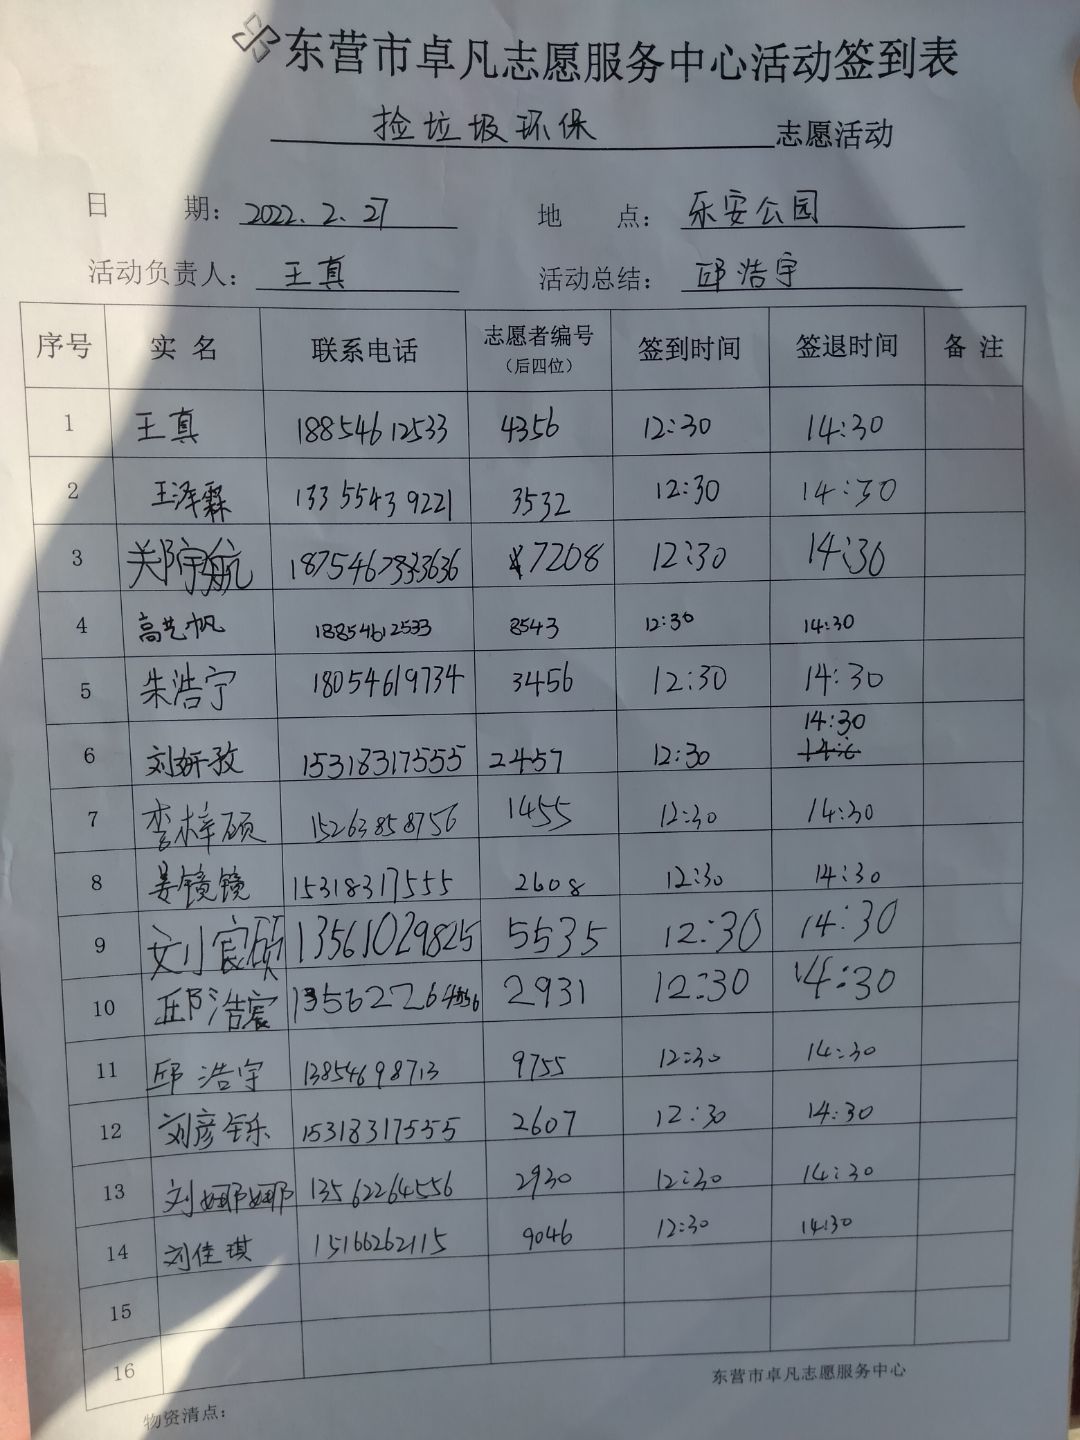 东营市卓凡志愿服务中心活动签到表
捡垃圾环保 志愿活动
日 期: 2022.2.27 地 点: 乐安公园
活动负责人: 王真 活动总结: 邱浩宇
序号 实名 联系电话 志愿者编号 (后四位) 签到时间 签退时间 备注
1 王真 18854612533 4356 12:30 14:30
2 王泽霖 13355439221 3532 12:30 14:30
3 郑宇航 7208 12:30 14:30
4 高艺帆 18854612533 8543 12:30 14:30
5 朱浩宁 18054619734 3456 12:30 14:30
6 刘妍孜 15318317555 2457 12:30 14:30
7 李梓硕 15263858756 1455 12:30 14:30
8 姜镜镜 15318317555 2608 12:30 14:30
9 文小宸硕 13561029825 5535 12:30 14:30
10 邱浩宸 2931 12:30 14:30
11 邱浩宇 13854698713 9755 12:30 14:30
12 刘彦铄 15318317555 2607 12:30 14:30
13 刘娜娜 13562264556 2930 12:30 14:30
14 刘佳琪 15166262115 9046 12:30 14:30
15
16
东营市卓凡志愿服务中心
物资清点: